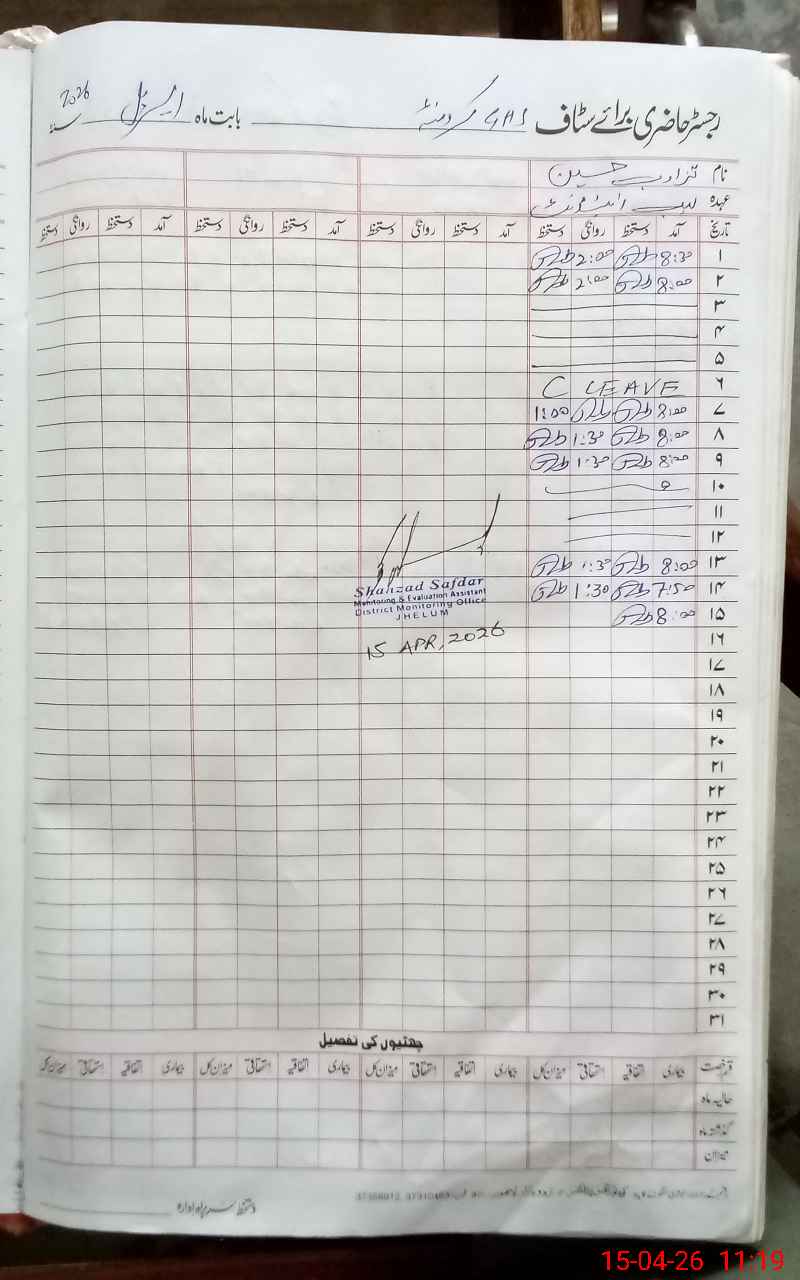 رجسٹر حاضری برائے سٹاف GHS بابت ماہ اپریل سنہ 2026
نام تراب حسین
عہدہ لیب اٹنڈنٹ
تاریخ آمد دستخط روانگی دستخط آمد دستخط روانگی دستخط آمد دستخط روانگی دستخط آمد دستخط روانگی دستخط
۱ 8:30 2:00
۲ 8:00 2:00
۳
۴
۵
۶ C LEAVE
۷ 8:00 1:00
۸ 8:00 1:30
۹ 8:00 1:30
۱۰
۱۱
۱۲
۱۳ 8:00 1:30
۱۴ 7:50 1:30
۱۵ 8:00
Shahzad Safdar
Monitoring & Evaluation Assistant
District Monitoring Office
JHELUM
15 APR, 2026
۱۶
۱۷
۱۸
۱۹
۲۰
۲۱
۲۲
۲۳
۲۴
۲۵
۲۶
۲۷
۲۸
۲۹
۳۰
۳۱
چھٹیوں کی تفصیل
قسم رخصت بیماری اتفاقیہ استحقاقی میزان کل بیماری اتفاقیہ استحقاقی میزان کل بیماری اتفاقیہ استحقاقی میزان کل بیماری اتفاقیہ استحقاقی میزان کل
حالیہ ماہ
گذشتہ ماہ
میزان
دستخط سربراہ ادارہ
15-04-26 11:19